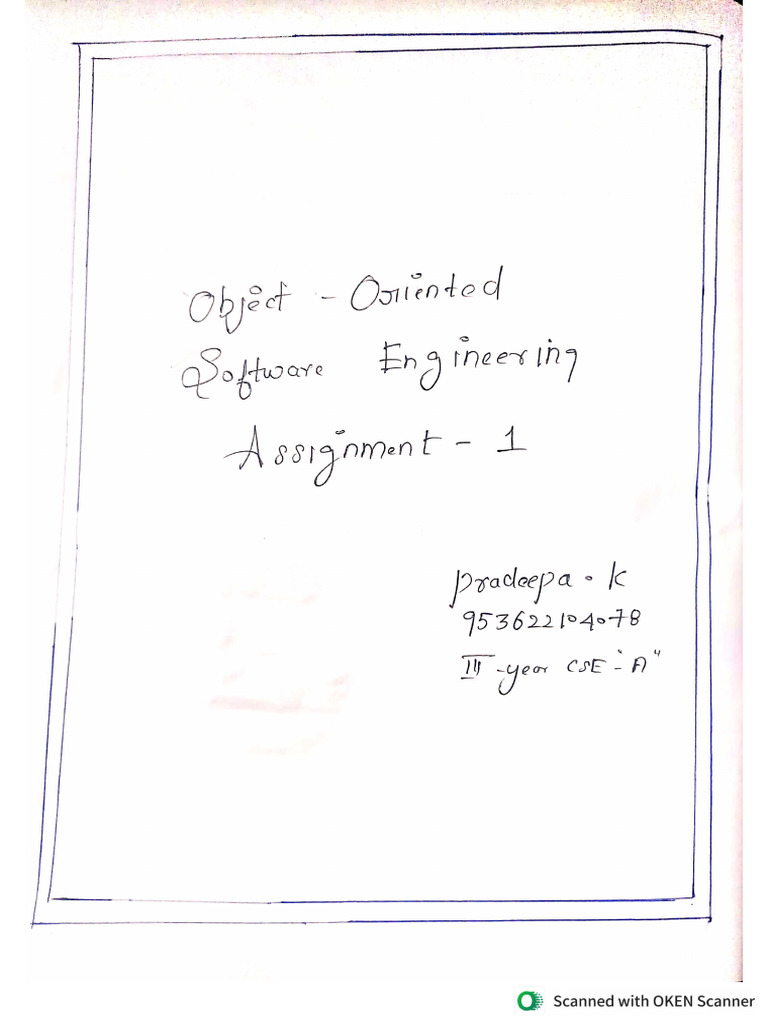 Object - Oriented
Software Engineering
Assignment - 1
Pradeepa . K
953622104078
III - year CSE - "A"
Scanned with OKEN Scanner